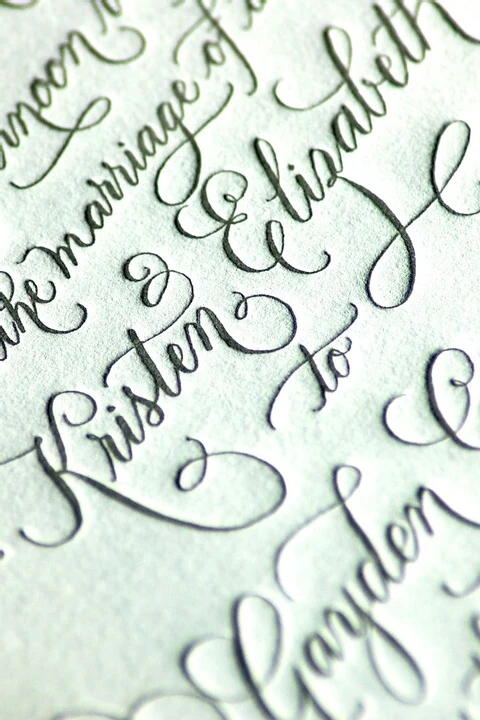 ernoon
the marriage of
Kristen Elizabeth
to
Gayden